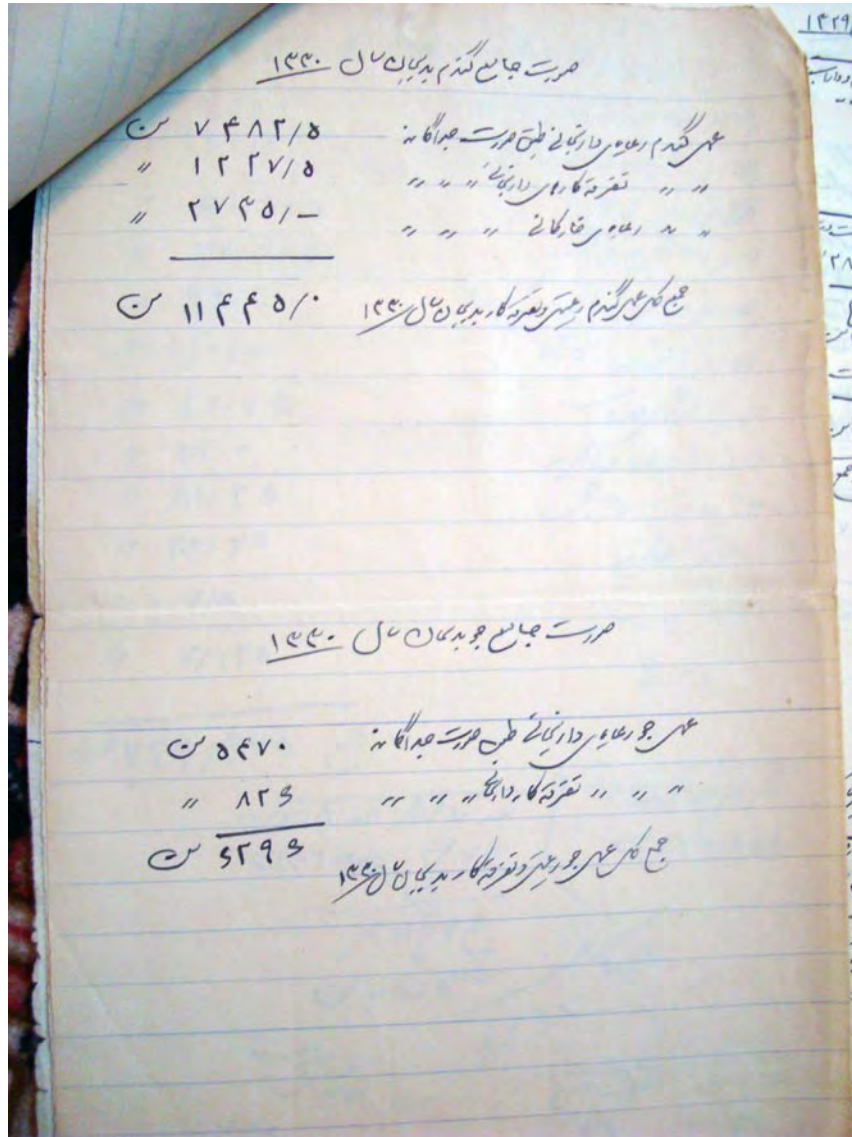 صورت جامع گندم بدیجان سال ۱۳۳۰
عمل گندم رعایای دارنجانی طبق صورت جداگانه ۷۴۸۲/۵ من
" " تفرقه کارهای دارنجانی " " " ۱۲۲۷/۵ "
" " رعایای خارکانی " " " ۲۷۳۵/- "
جمع کل عمل گندم رعیتی و تفرقه کار بدیجان سال ۱۳۳۰ ۱۱۴۴۵/۰ من
صورت جامع جو بدیجان سال ۱۳۳۰
عمل جو رعایای دارنجانی طبق صورت جداگانه ۵۴۷۰ من
" " " تفرقه کار دارنجانی " " " ۸۲۶ "
جمع کل عمل جو رعیتی و تفرقه کار بدیجان سال ۱۳۳۰ ۶۲۹۶ من
۱۳۲۹
جمع